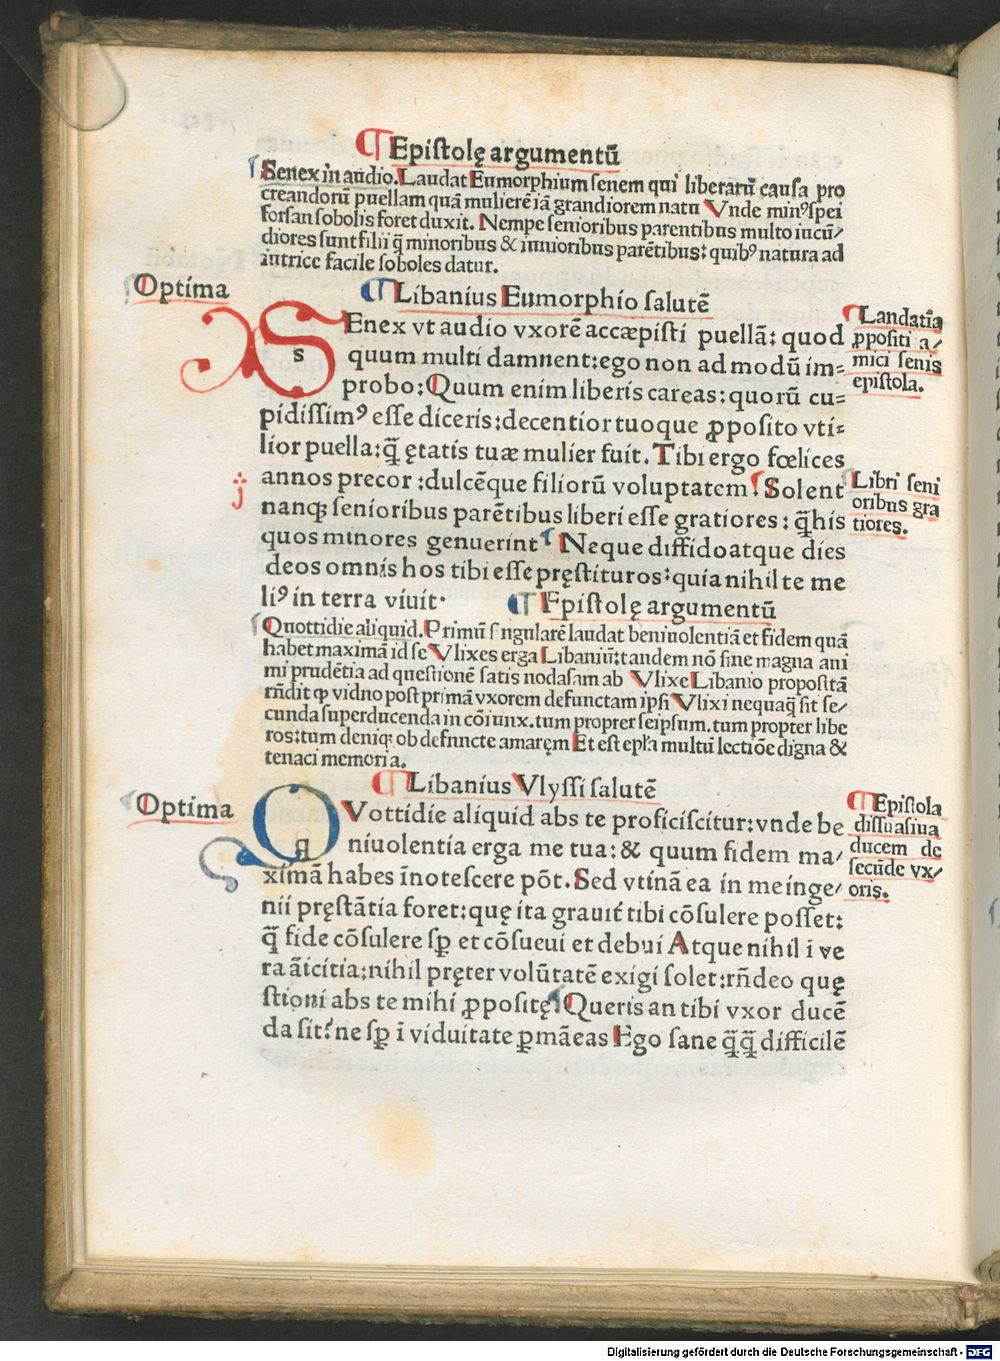 ¶ Epistolę argumentū
Senex in audio. Laudat Eumorphium senem qui liberarū causa pro
creandorū puellam quā mulierē iā grandiorem natu Vnde minꝰ spei
forsan sobolis foret duxit. Nempe senioribus parentibus multo iucū/
diores sunt filii q̄ minoribus & iunioribus parētibus: quibꝰ natura ad
iutrice facile soboles datur.
Optima
¶ Libanius Eumorphio salutē
SEnex vt audio vxorē accæpisti puellā: quod
quum multi damnent: ego non ad modū im=
probo: Quum enim liberis careas: quorū cu=
pidissimꝰ esse diceris: decentior tuoque ꝓposito vti=
lior puella: q̄ ętatis tuæ mulier fuit. Tibi ergo fœlices
annos precor : dulcēque filiorū voluptatem. Solent
nanqꝫ senioribus parētibus liberi esse gratiores : q̄ his
quos minores genuerint Neque diffido atque dies
deos omnis hos tibi esse pręstituros: quia nihil te me
liꝰ in terra viuit·
Laudatīa
ꝓpositi a/
mici senis
epistola.
Libri seni
oribus gra
tiores.
¶ Epistolę argumentū
Quottidie aliquid. Primū singularē laudat beniuolentiā et fidem quā
habet maximā id se Vlixes erga Libaniū: tandem nō sine magna ani
mi prudētia ad questionē satis nodasam ab Vlixe Libanio propositā
rn̄dit ꝙ vidno post primā vxorem defunctam ipsi Vlixi nequaq̄ sit se/
cunda superducenda in cōiunx. tum proprer seipsum. tum propter libe
ros: tum deniqꝫ ob defuncte amaręm Et est epl̄a multū lectiōe digna &
tenaci memoria.
¶ Libanius Vlyssi salutē
Optima
QVottidie aliquid abs te proficiscitur: vnde be
niuolentia erga me tua: & quum fidem ma/
ximā habes īnotescere pōt. Sed vtinā ea in me inge/
nii pręstātia foret: quę ita grauit̄ tibi cōsulere posset:
q̄ fide cōsulere sꝑ et cōsueui et debui Atque nihil i ve
ra āicitia: nihil pręter volūtatē exigi solet: rn̄deo quę
stioni abs te mihi ꝓpositę Queris an tibi vxor ducē
da sit: ne sꝑ ī viduitate ꝑmāeas Ego sane q̄q̄ difficilē
¶ Epistola
dissuasiua
ducem de
secūde vx/
oris.
Digitalisierung gefördert durch die Deutsche Forschungsgemeinschaft - DFG